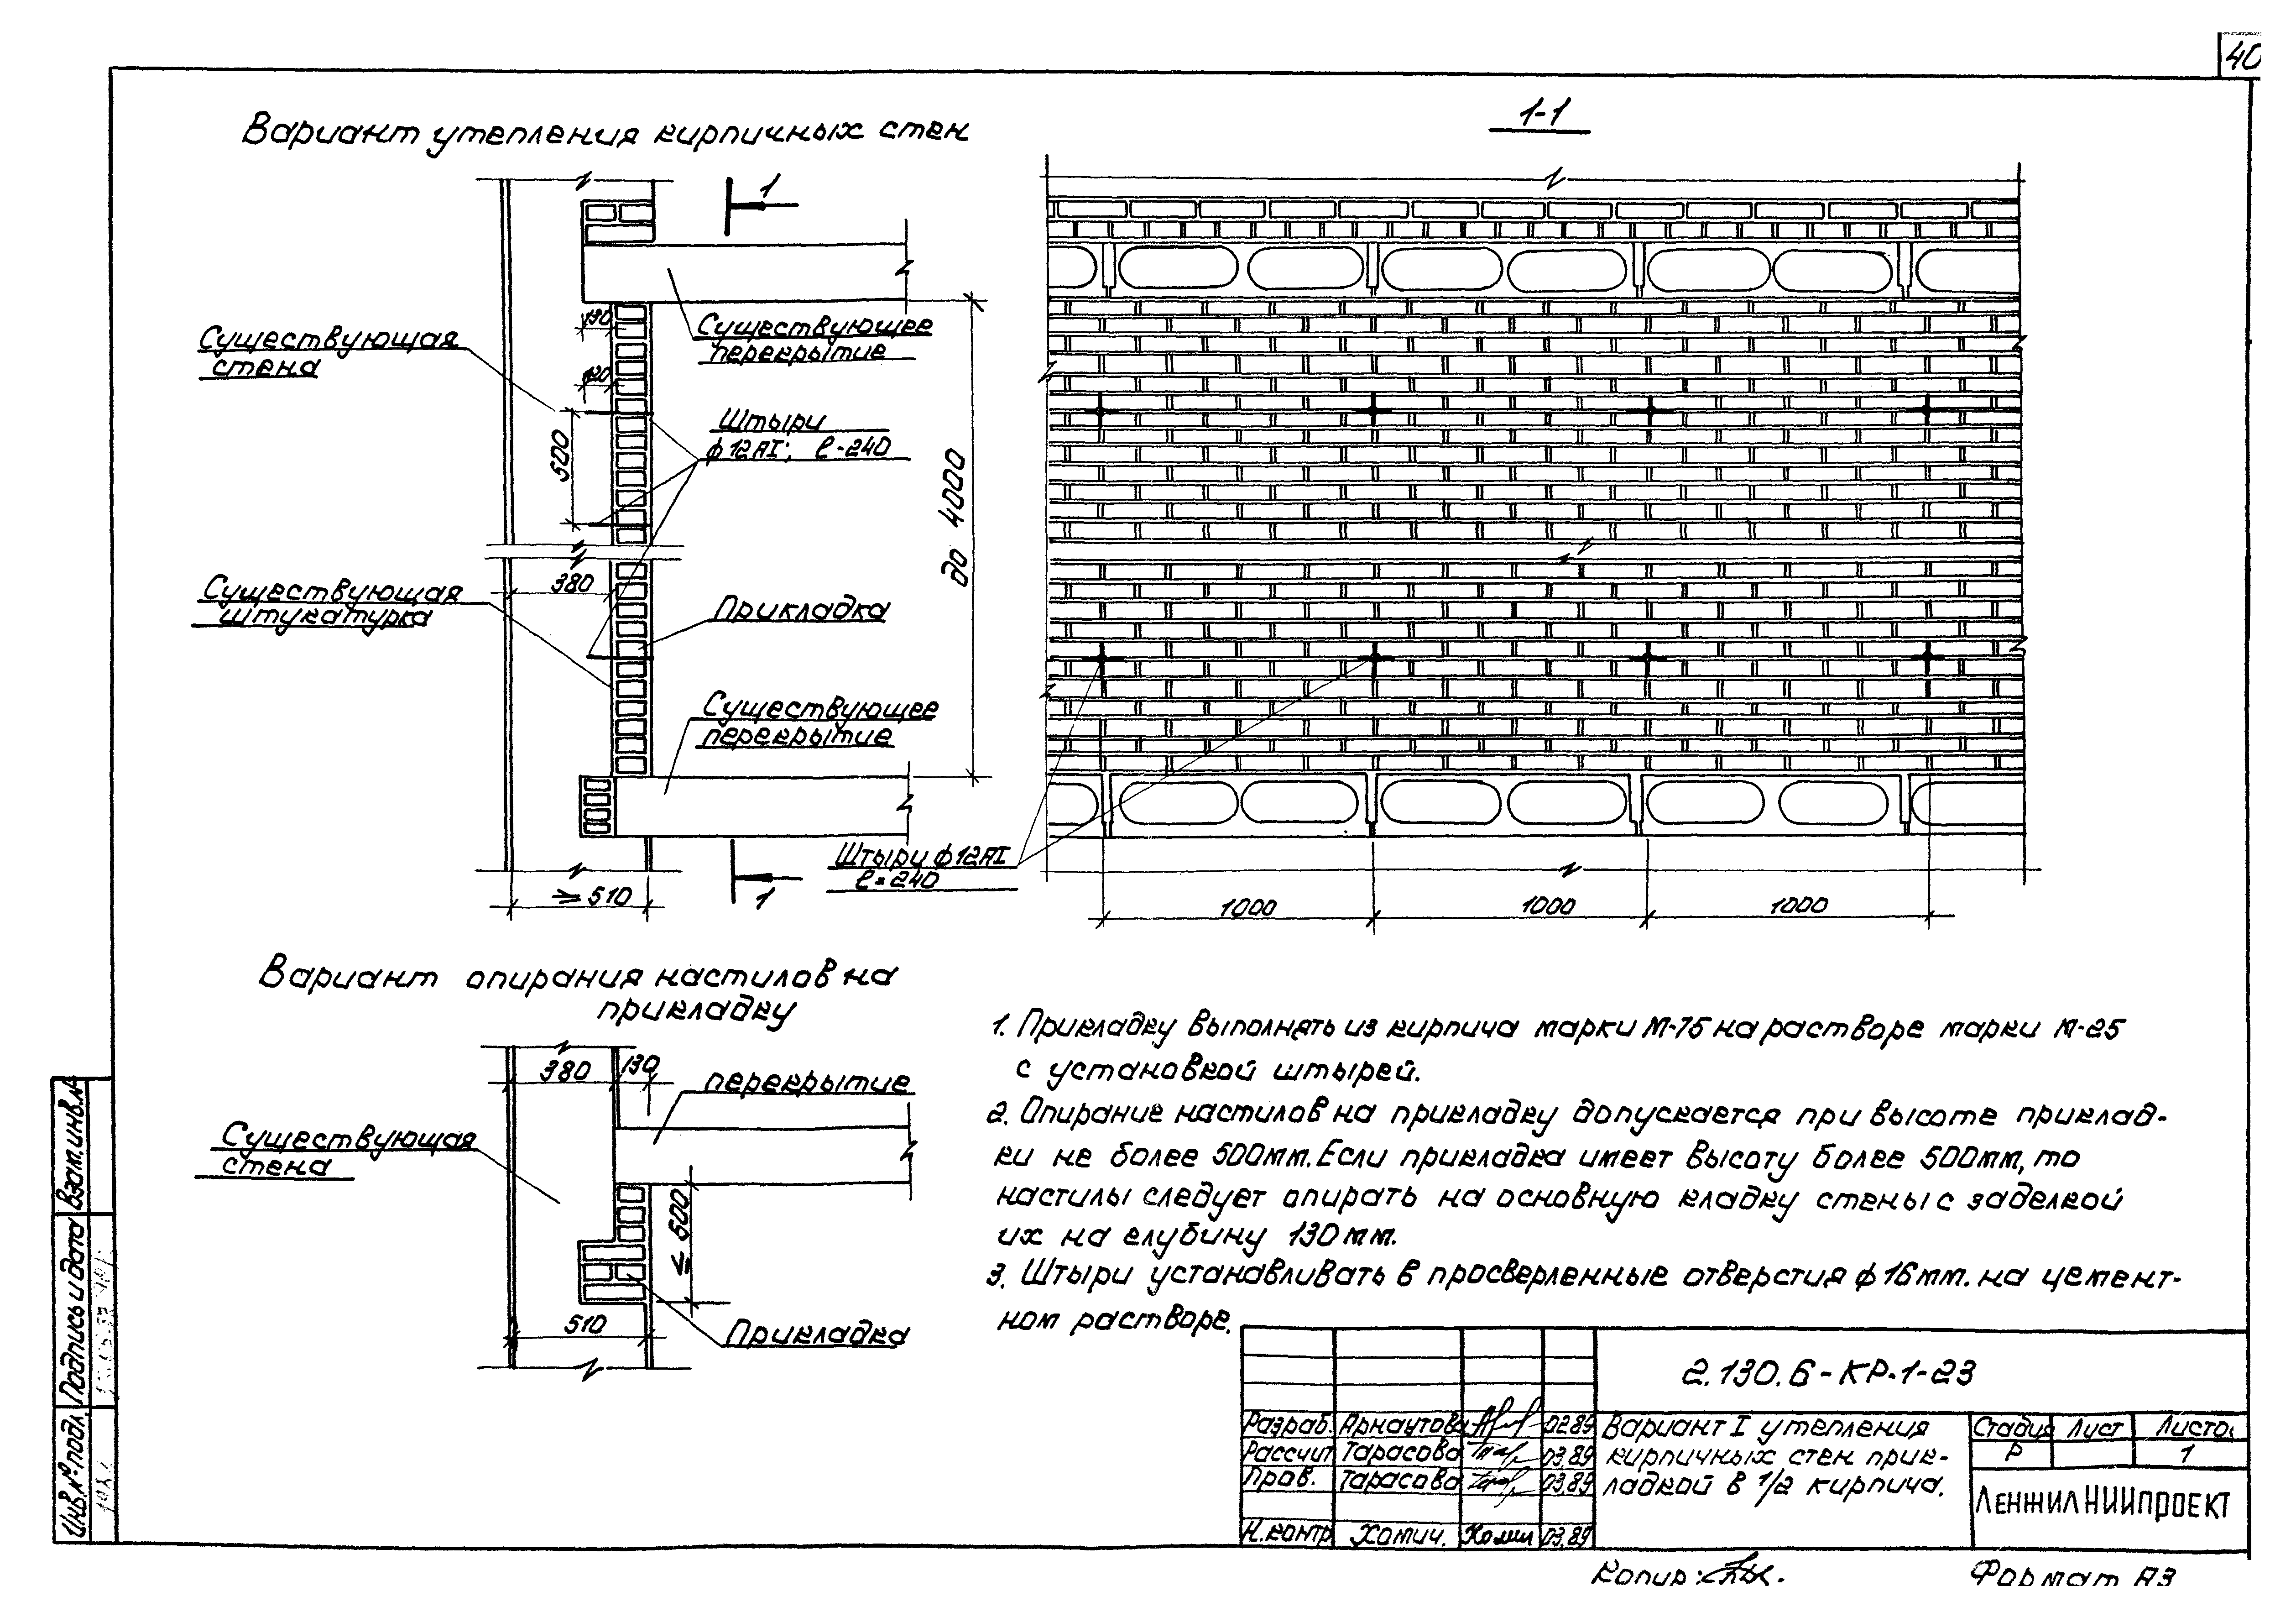 40
Вариант утепления кирпичных стен
1-1
1
130
Существующая
стена
Существующее
перекрытие
120
Штыри
ф12АI; ℓ-240
500
до 4000
380
Существующая
штукатурка
Прикладка
Существующее
перекрытие
Штыри ф12АI
ℓ=240
1
≥ 510
1000
1000
1000
Вариант опирания настилов на
прикладку
380
130
перекрытие
Существующая
стена
≤ 500
510
Прикладка
1. Прикладку выполнять из кирпича марки М-75 на растворе марки М-25
с установкой штырей.
2. Опирание настилов на прикладку допускается при высоте приклад-
ки не более 500мм. Если прикладка имеет высоту более 500мм, то
настилы следует опирать на основную кладку стены с заделкой
их на глубину 130мм.
3. Штыри устанавливать в просверленные отверстия ф16мм. на цемент-
ном растворе.
2.130.6-КР.1-23
Разраб. Арнаутова 02.89
Рассчит Тарасова 03.89
Пров. Тарасова 03.89
Н.контр. Хомич. 03.89
Вариант I утепления
кирпичных стен прик-
ладкой в 1/2 кирпича.
Стадия Лист Листо.
Р 1
ЛЕНЖИЛНИИПРОЕКТ
Взам.инв.№
Подпись и дата
Инв.№подл.
Копир:
Формат А3